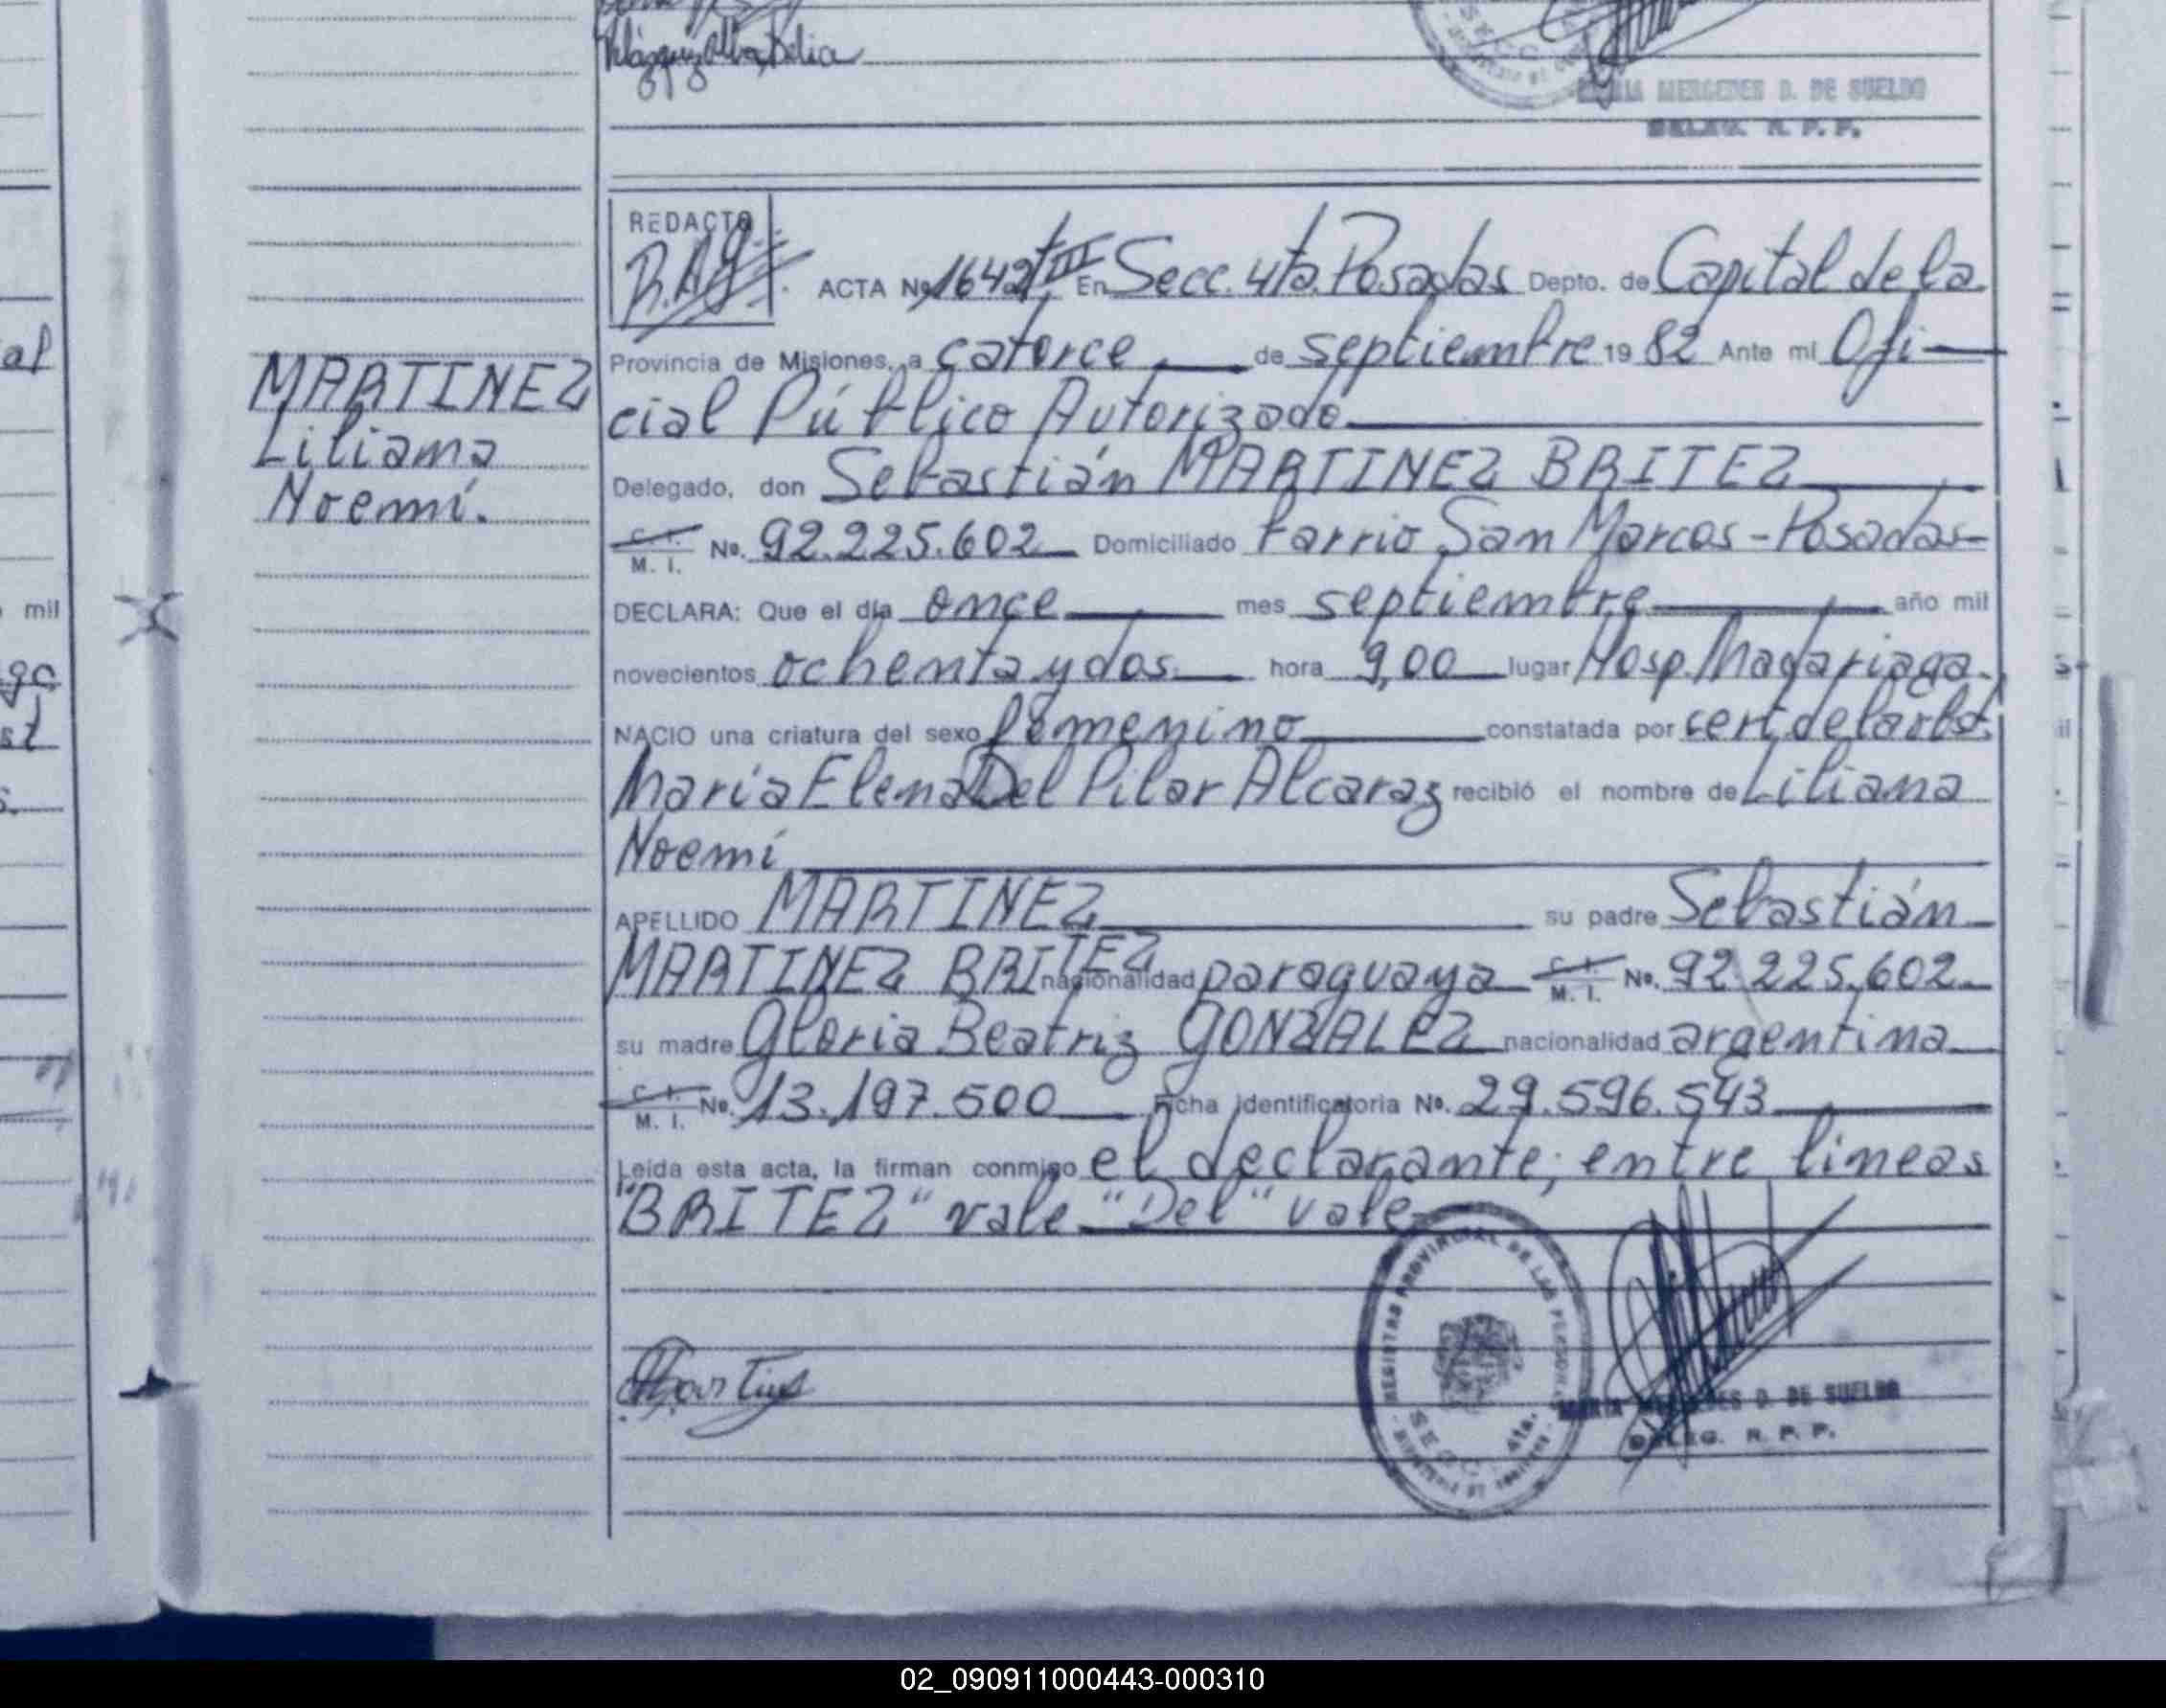 Velázquez Alba Delia
SECC.
MARIA MERCEDES D. DE SUELDO
DELEG. R. P. P.
REDACTO
ACTA Nº 1642 tIII En Secc. 4ta. Posadas Depto. de Capital de la
Provincia de Misiones, a catorce de septiembre 19 82 Ante mi Ofi-
cial Público Autorizado
Delegado, don Sebastián MARTINEZ BRITEZ
C. I. M. I. Nº. 92.225.602 Domiciliado barrio San Marcos - Posadas-
DECLARA: Que el día once mes septiembre año mil
novecientos ochenta y dos hora 9,00 lugar Hosp. Madariaga.
NACIO una criatura del sexo femenino constatada por cert. de la obst.
María Elena Del Pilar Alcaraz recibió el nombre de Liliana
Noemí
APELLIDO MARTINEZ su padre Sebastián
MARTINEZ BRITEZ nacionalidad paraguaya C. I. M. I. Nº. 92.225.602
su madre Gloria Beatriz GONZALEZ nacionalidad argentina
C. I. M. I. Nº. 13.197.500 Ficha identificatoria Nº. 29.596.543
Leída esta acta, la firman conmigo el declarante; entre lineas
"BRITEZ" vale "Del" vale
MARTINEZ
Liliana
Noemí.
al
mil
REGISTRO PROVINCIAL DE LAS PERSONAS
SECC. 4ta.
MARIA MERCEDES D. DE SUELDO
DELEG. R. P. P.
02_090911000443-000310